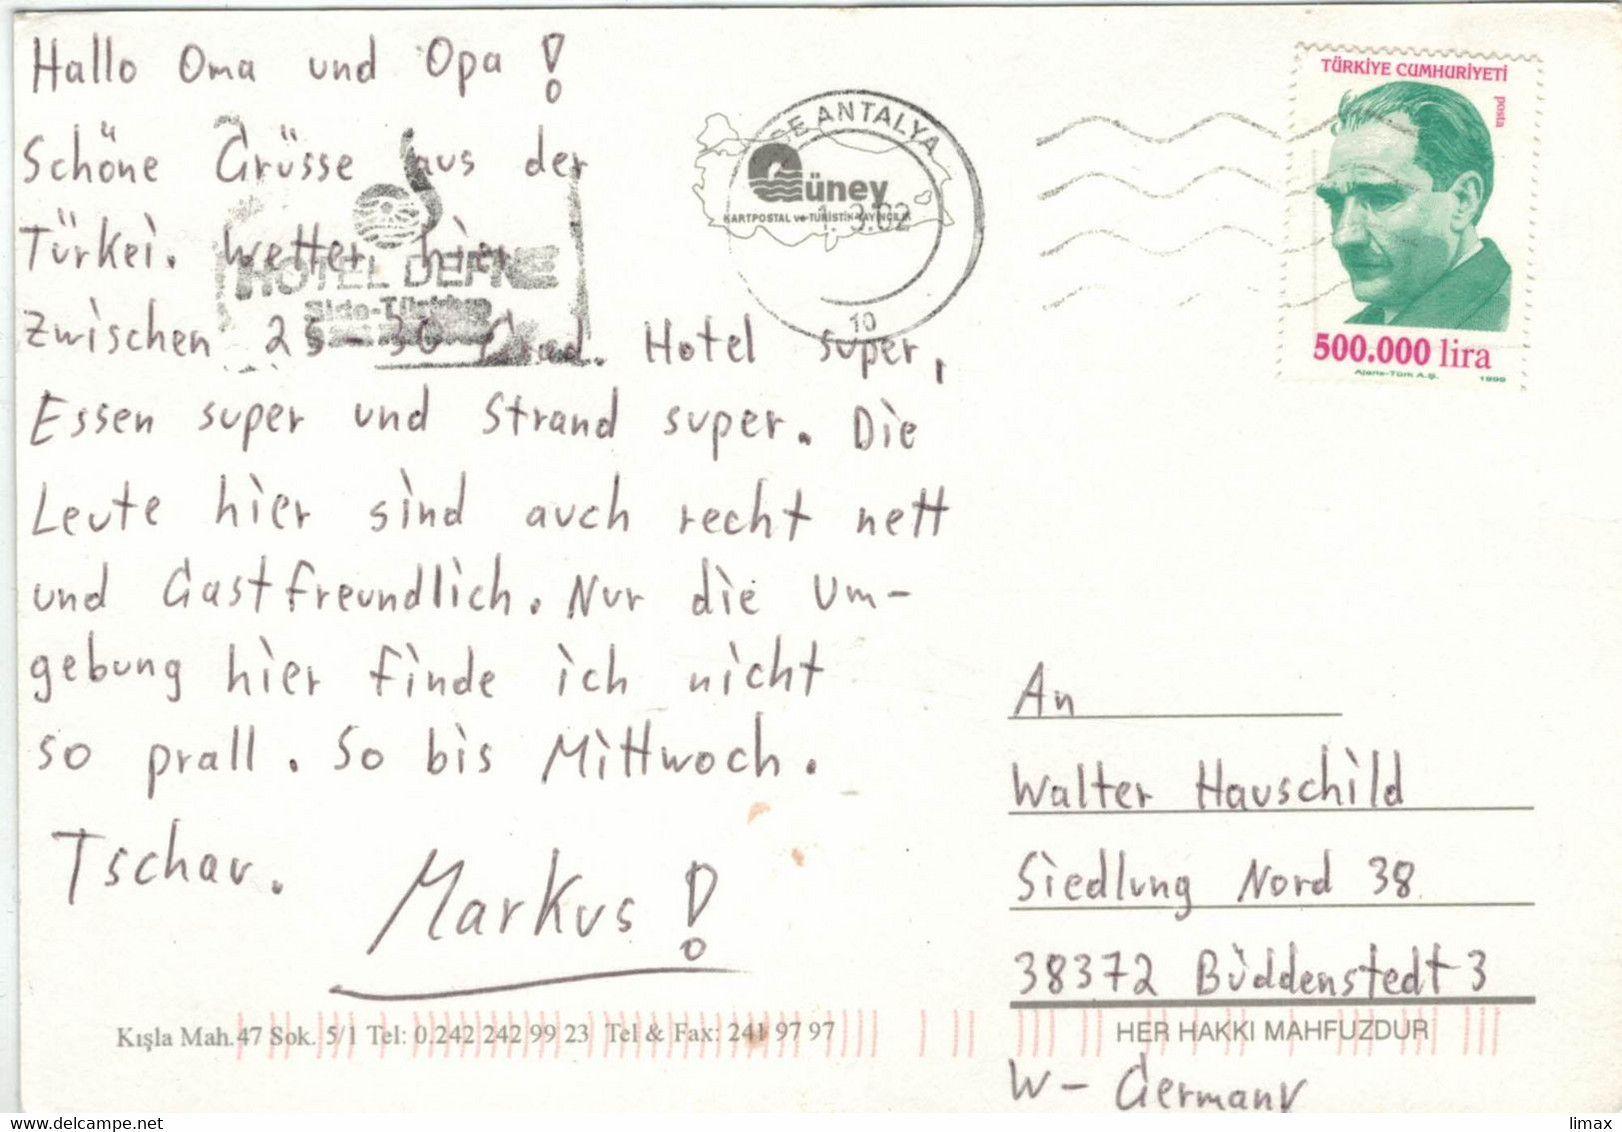 Hallo Oma und Opa !
Schöne Grüsse aus der
Türkei. Wetter hier
zwischen 25 - 30 Grad. Hotel super,
Essen super und Strand super. Die
Leute hier sind auch recht nett
und Gastfreundlich. Nur die Um-
gebung hier finde ich nicht
so prall. So bis Mittwoch.
Tschau.
Markus !
HOTEL DEFNE
Side-
ANTALYA
10
Güney
KARTPOSTAL ve TURİSTİK YAYINCILIK
TÜRKİYE CUMHURİYETİ
posta
500.000 lira
Ajans-Türk A.Ş.
An
Walter Hauschild
Siedlung Nord 38
38372 Büddenstedt 3
W- Germany
Kışla Mah.47 Sok. 5/1 Tel: 0.242 242 99 23 Tel & Fax: 241 97 97
HER HAKKI MAHFUZDUR
limax